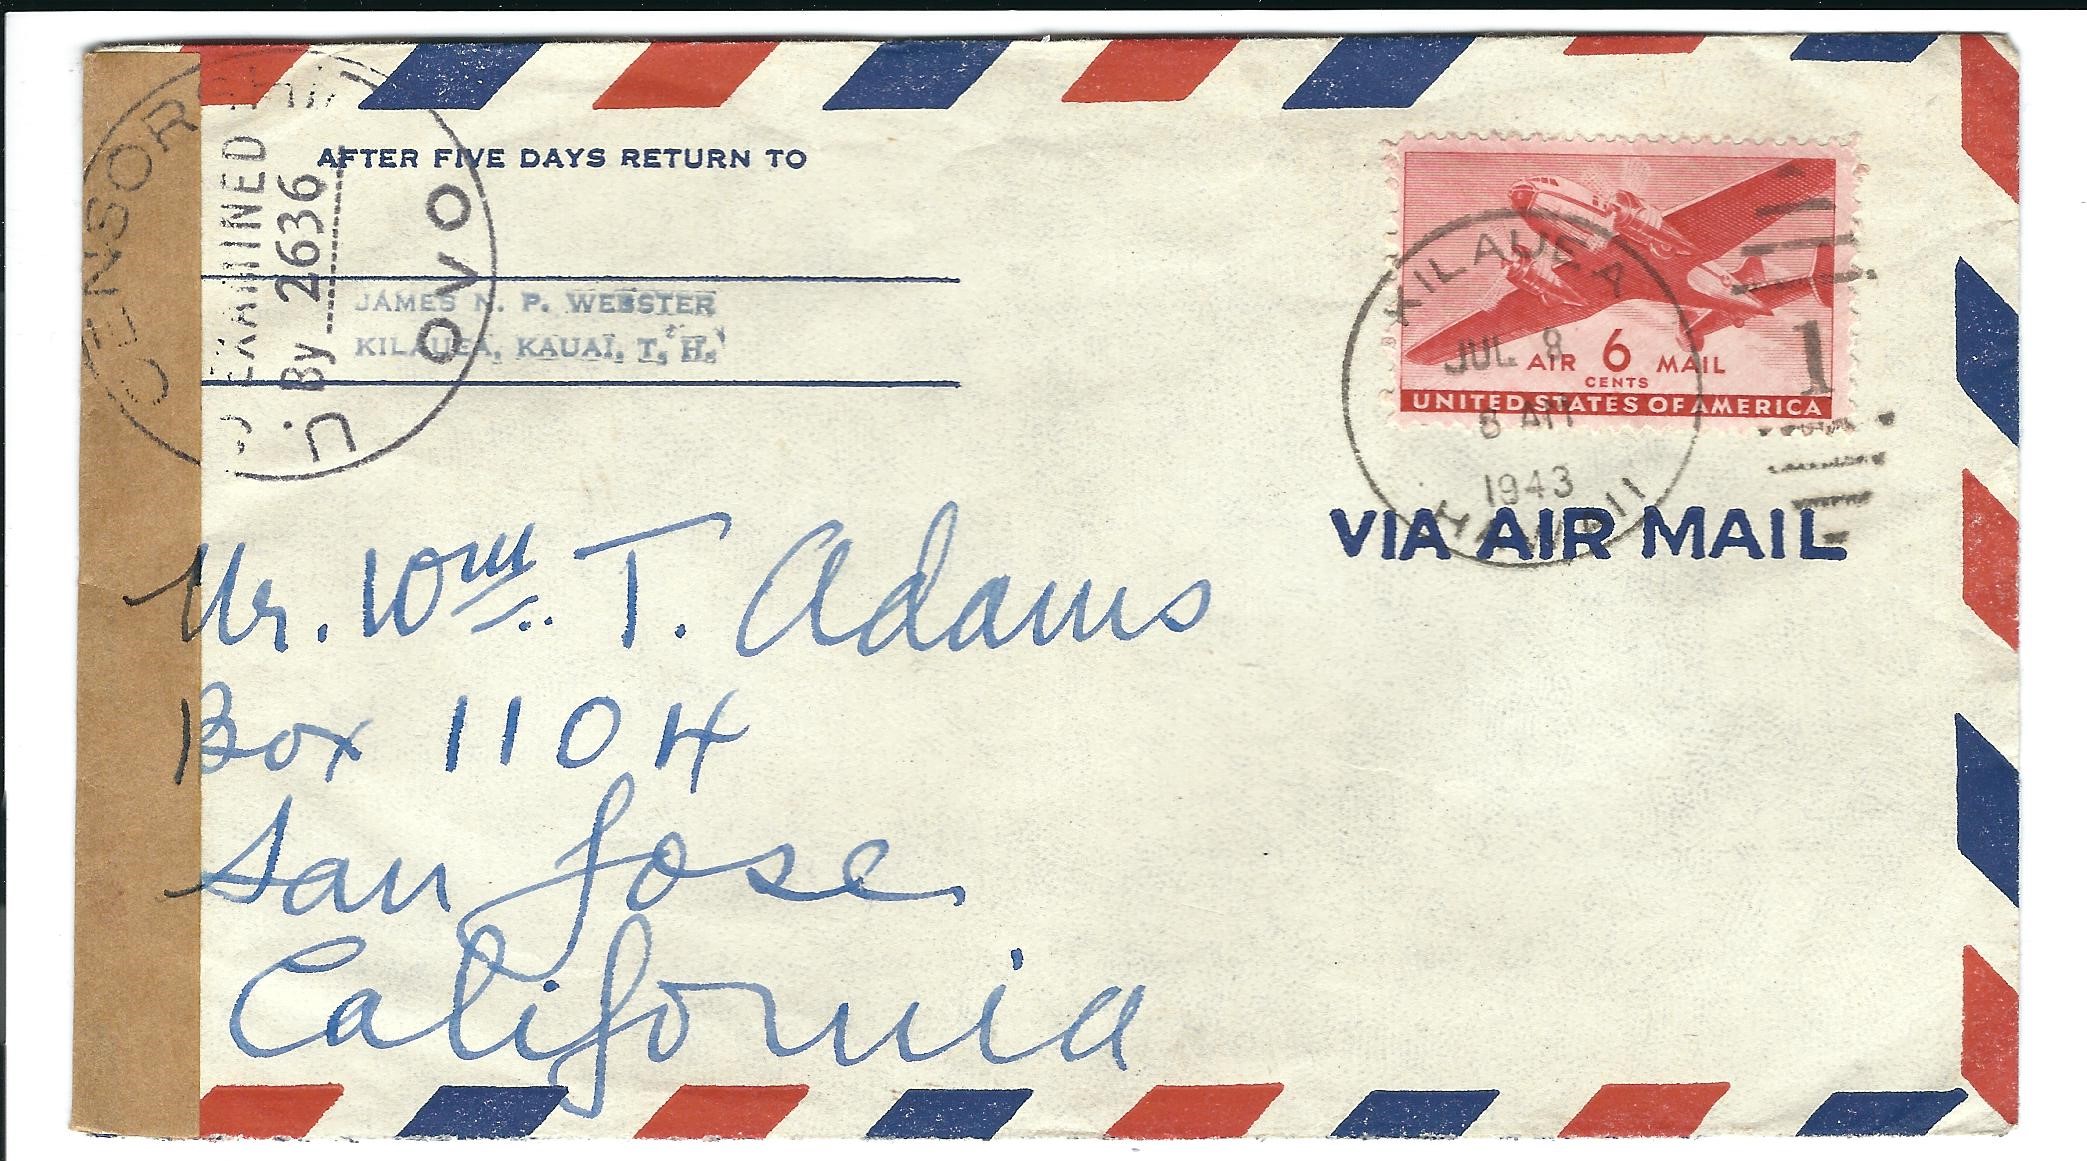 CENSOR
EXAMINED
By 2636
AFTER FIVE DAYS RETURN TO
JAMES N. P. WEBSTER
KILAUEA, KAUAI, T. H.
KILAUEA
JUL 8
8 AM
1943
HAWAII
1
AIR 6 MAIL
CENTS
UNITED STATES OF AMERICA
VIA AIR MAIL
Mr. Wm. T. Adams
Box 1104
San Jose
California